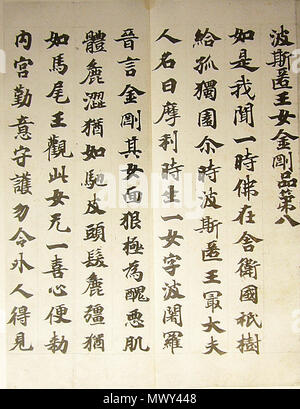 波斯匿王女金剛品第八
如是我聞一時佛在舍衛國祇樹
給孤獨園尒時波斯匿王冣大夫
人名曰摩利時生一女字波闍羅
晉言金剛其女面狠極為醜惡肌
體麁澀猶如駞皮頭髮麁彊猶
如馬尾王觀此女无一喜心便勑
內宮勤意守護勿令外人得見
alamy
Image ID: MWY448
www.alamy.com